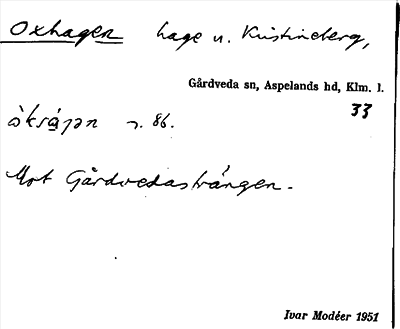 Oxhagen hage u. Kristineberg,
Gårdveda sn, Aspelands hd, Klm. l.
33
r. 86.
Mot Gårdvedastrången.
Ivar Modéer 1951